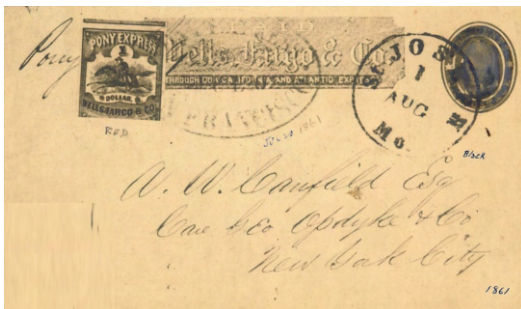 Pony
PONY EXPRESS
DOLLAR.
WELLS, FARGO & CO.
Wells, Fargo & Co.
THROUGH OUR CALIFORNIA AND ATLANTIC EXPRESS
FRANCISCO
ST JOSEPH
1
AUG
Mo.
RED
1861
Black
A. W. Canfield Esq
Care Geo Opdyke & Co
New York City
1861